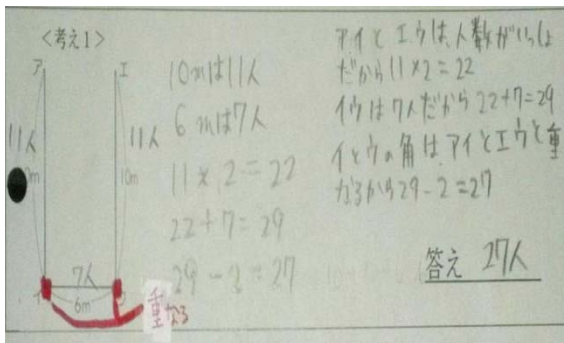 <考え1>
ア
エ
11人
11人
10m
7人
6m
重なる
10mは11人
6mは7人
11×2=22
22+7=29
29-2=27
アイとエウは、人数がいっしょ
だから11×2=22
イウは7人だから22+7=29
イとウの角は、アイとエウと重
なるから29-2=27
答え 27人